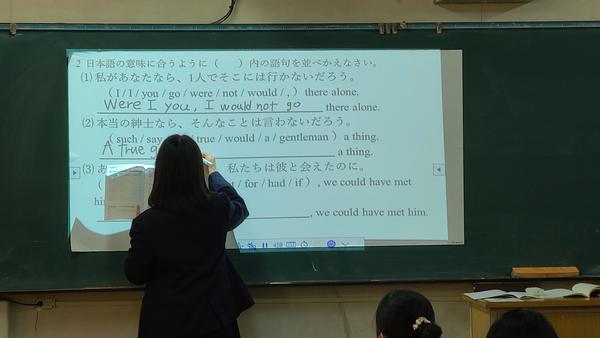 2 日本語の意味に合うように（　）内の語句を並べかえなさい。
(1) 私があなたなら、1人でそこには行かないだろう。
( I / I / you / go / were / not / would / , ) there alone.
Were I you, I would not go there alone.
(2) 本当の紳士なら、そんなことは言わないだろう。
( such / say / true / would / a / gentleman ) a thing.
A true a thing.
(3) あ 私たちは彼と会えたのに。
( / for / had / if ) , we could have met
him
, we could have met him.